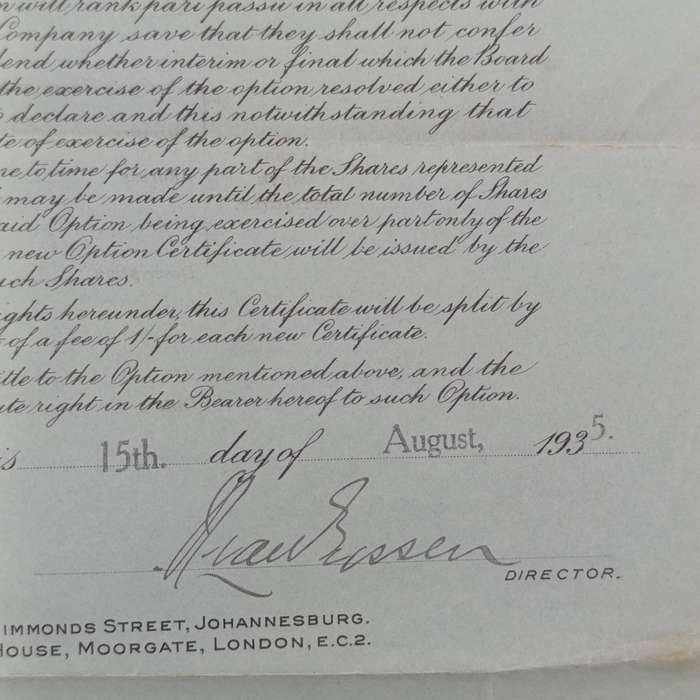 will rank pari passu in all respects with
Company save that they shall not confer
dend whether interim or final which the Board
the exercise of the option resolved either to
declare and this notwithstanding that
te of exercise of the option.
me to time for any part of the Shares represented
may be made until the total number of Shares
aid Option being exercised over part only of the
new Option Certificate will be issued by the
uch Shares.
ights hereunder, this Certificate will be split by
of a fee of 1/- for each new Certificate.
itle to the Option mentioned above, and the
ute right in the Bearer hereof to such Option.
is 15th. day of August, 1935.
DIRECTOR.
IMMONDS STREET, JOHANNESBURG.
HOUSE, MOORGATE, LONDON, E.C.2.